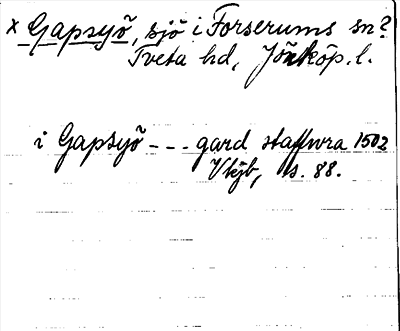 x Gapsyö, sjö i Forserums sn?
Tveta hd, Jönköp. l.
i Gapsyö --- gard staffwra 1502
Vkjb, s. 88.